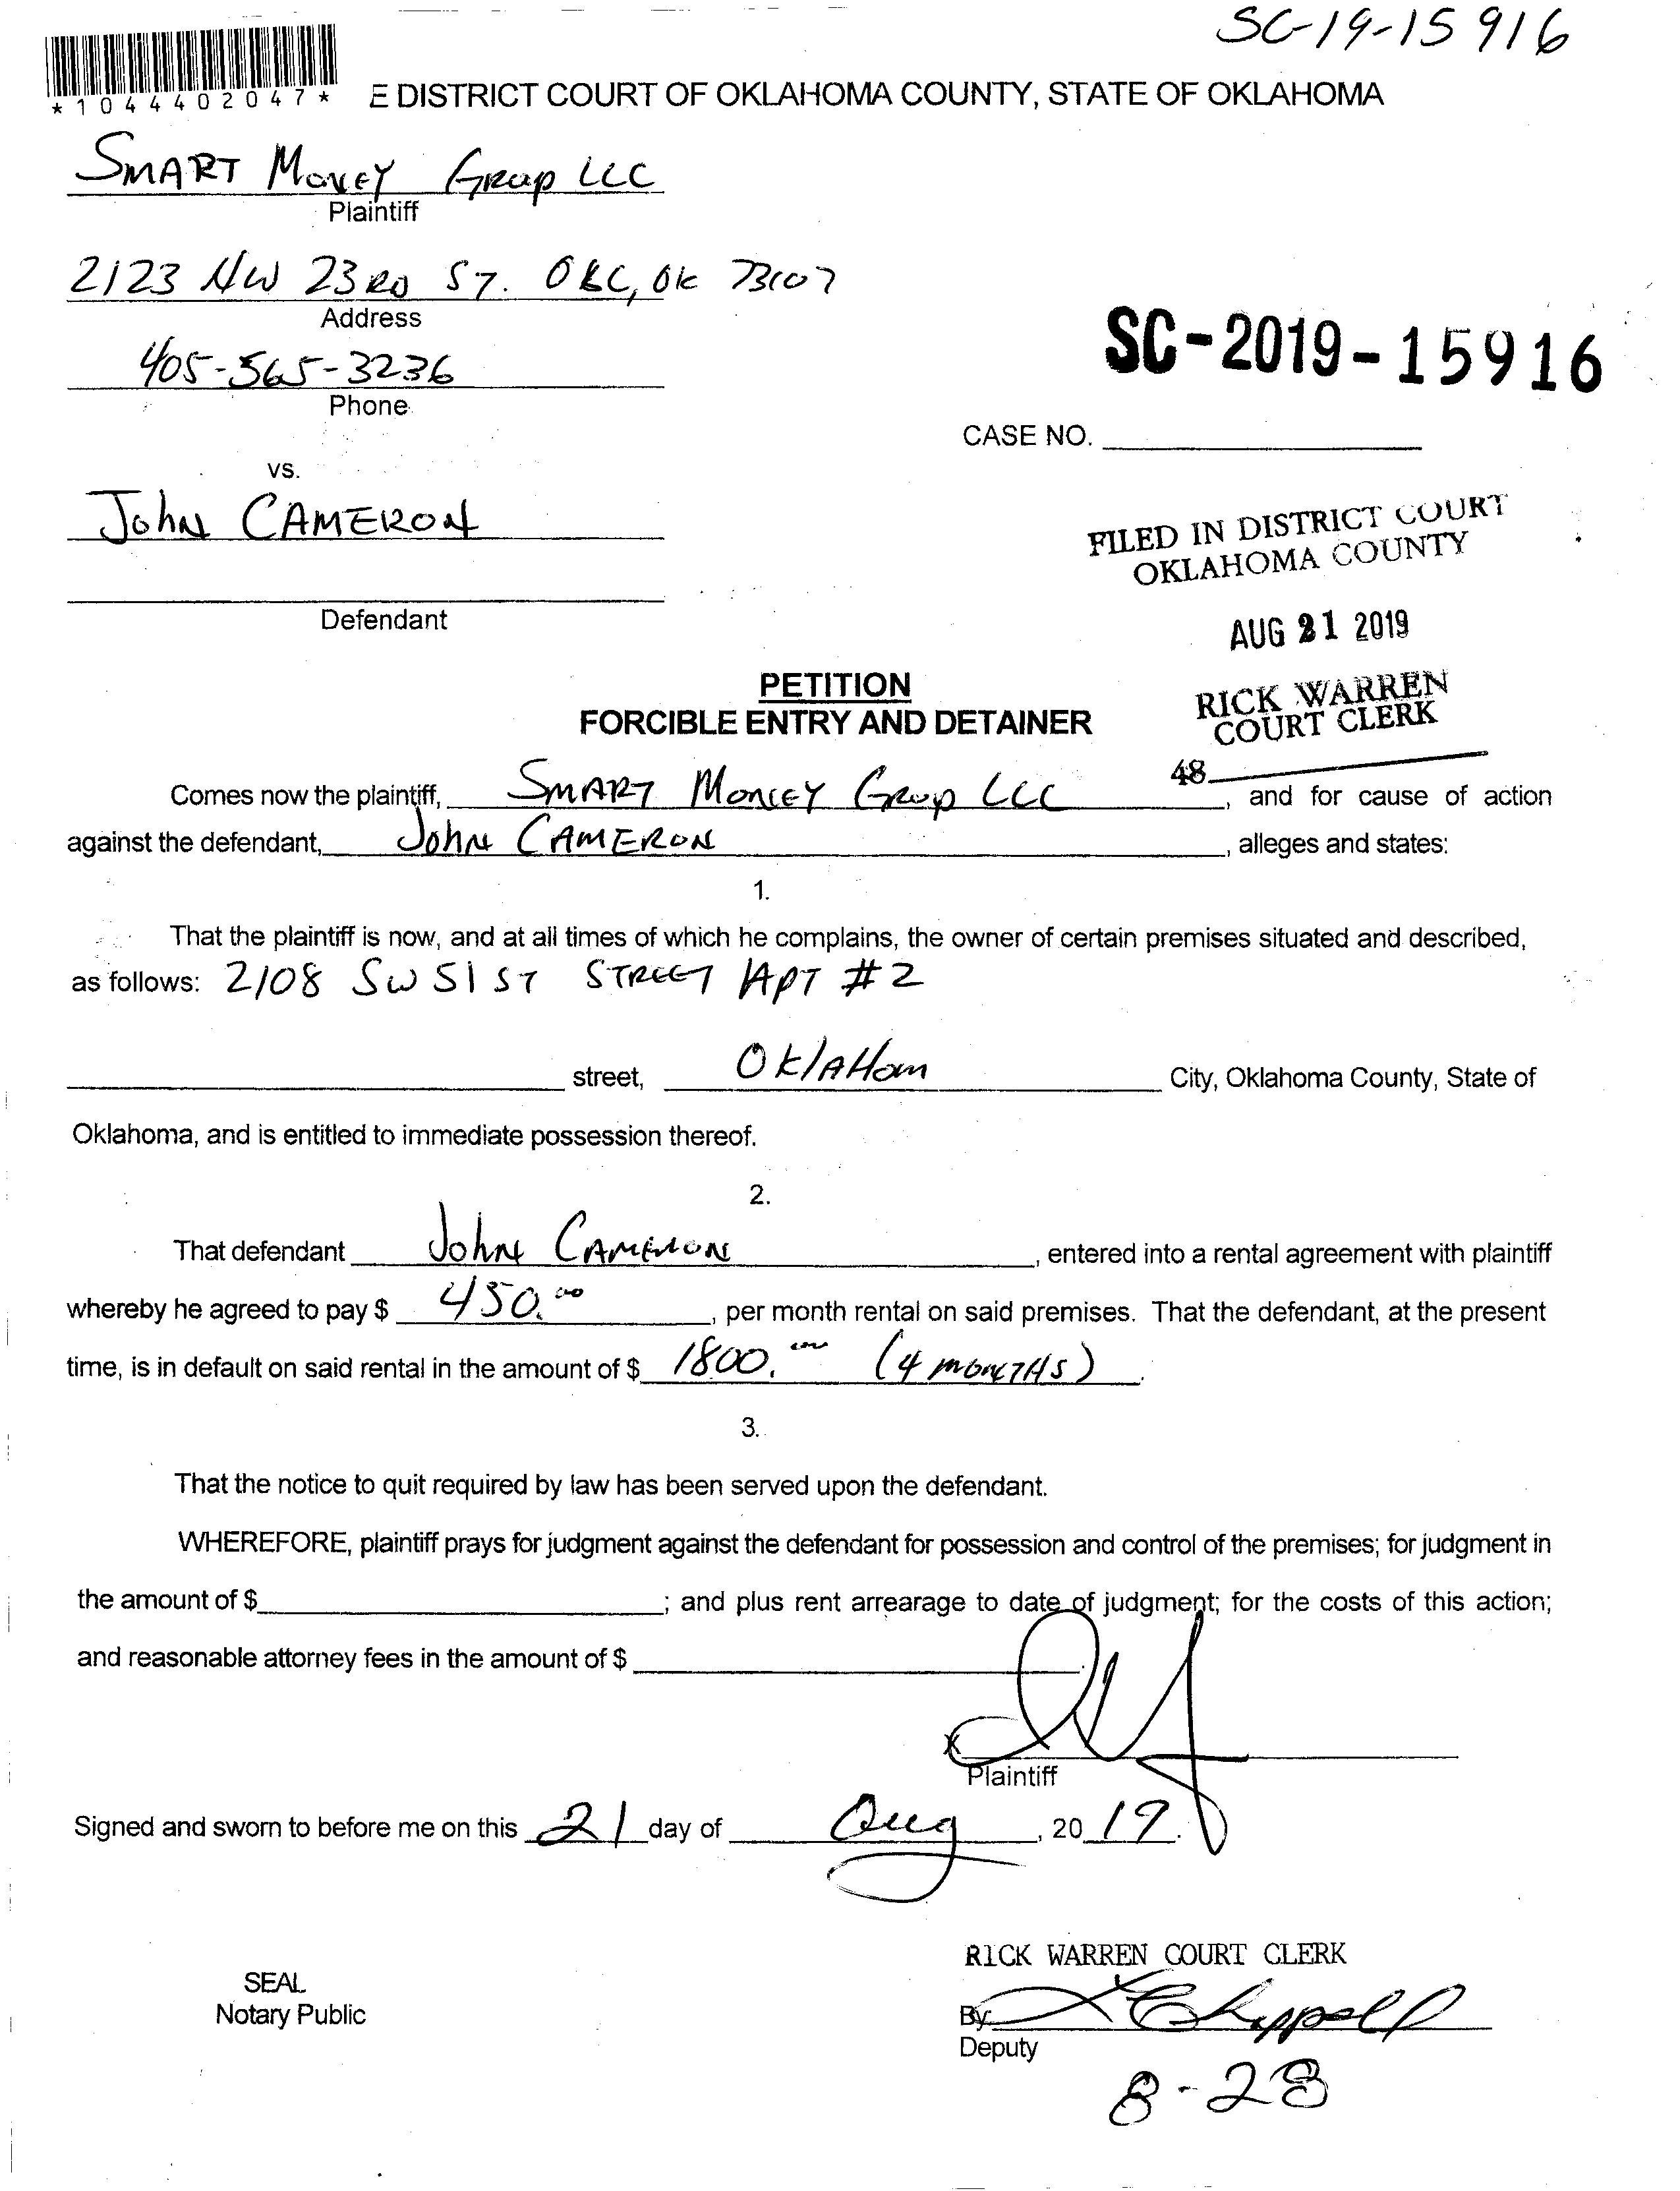 SC-19-15916
*1044402047*
E DISTRICT COURT OF OKLAHOMA COUNTY, STATE OF OKLAHOMA
SMART MONEY GROUP LLC
Plaintiff
2123 NW 23RD ST. OKC, OK 73107
Address
405-565-3236
Phone
SC-2019-15916
CASE NO.
vs.
JOHN CAMERON
Defendant
FILED IN DISTRICT COURT
OKLAHOMA COUNTY
AUG 21 2019
RICK WARREN
COURT CLERK
48
PETITION
FORCIBLE ENTRY AND DETAINER
Comes now the plaintiff, SMART MONEY GROUP LLC, and for cause of action
against the defendant, JOHN CAMERON, alleges and states:
1.
That the plaintiff is now, and at all times of which he complains, the owner of certain premises situated and described,
as follows: 2108 SW 51 ST STREET APT #2
street, OKLAHOM City, Oklahoma County, State of
Oklahoma, and is entitled to immediate possession thereof.
2.
That defendant JOHN CAMERON, entered into a rental agreement with plaintiff
whereby he agreed to pay $ 450.00, per month rental on said premises. That the defendant, at the present
time, is in default on said rental in the amount of $ 1800.00 (4 MONTHS).
3.
That the notice to quit required by law has been served upon the defendant.
WHEREFORE, plaintiff prays for judgment against the defendant for possession and control of the premises; for judgment in
the amount of $; and plus rent arrearage to date of judgment; for the costs of this action;
and reasonable attorney fees in the amount of $.
X
Plaintiff
Signed and sworn to before me on this 21 day of Aug, 2019.
SEAL
Notary Public
RICK WARREN COURT CLERK
By Chappell
Deputy
8-28